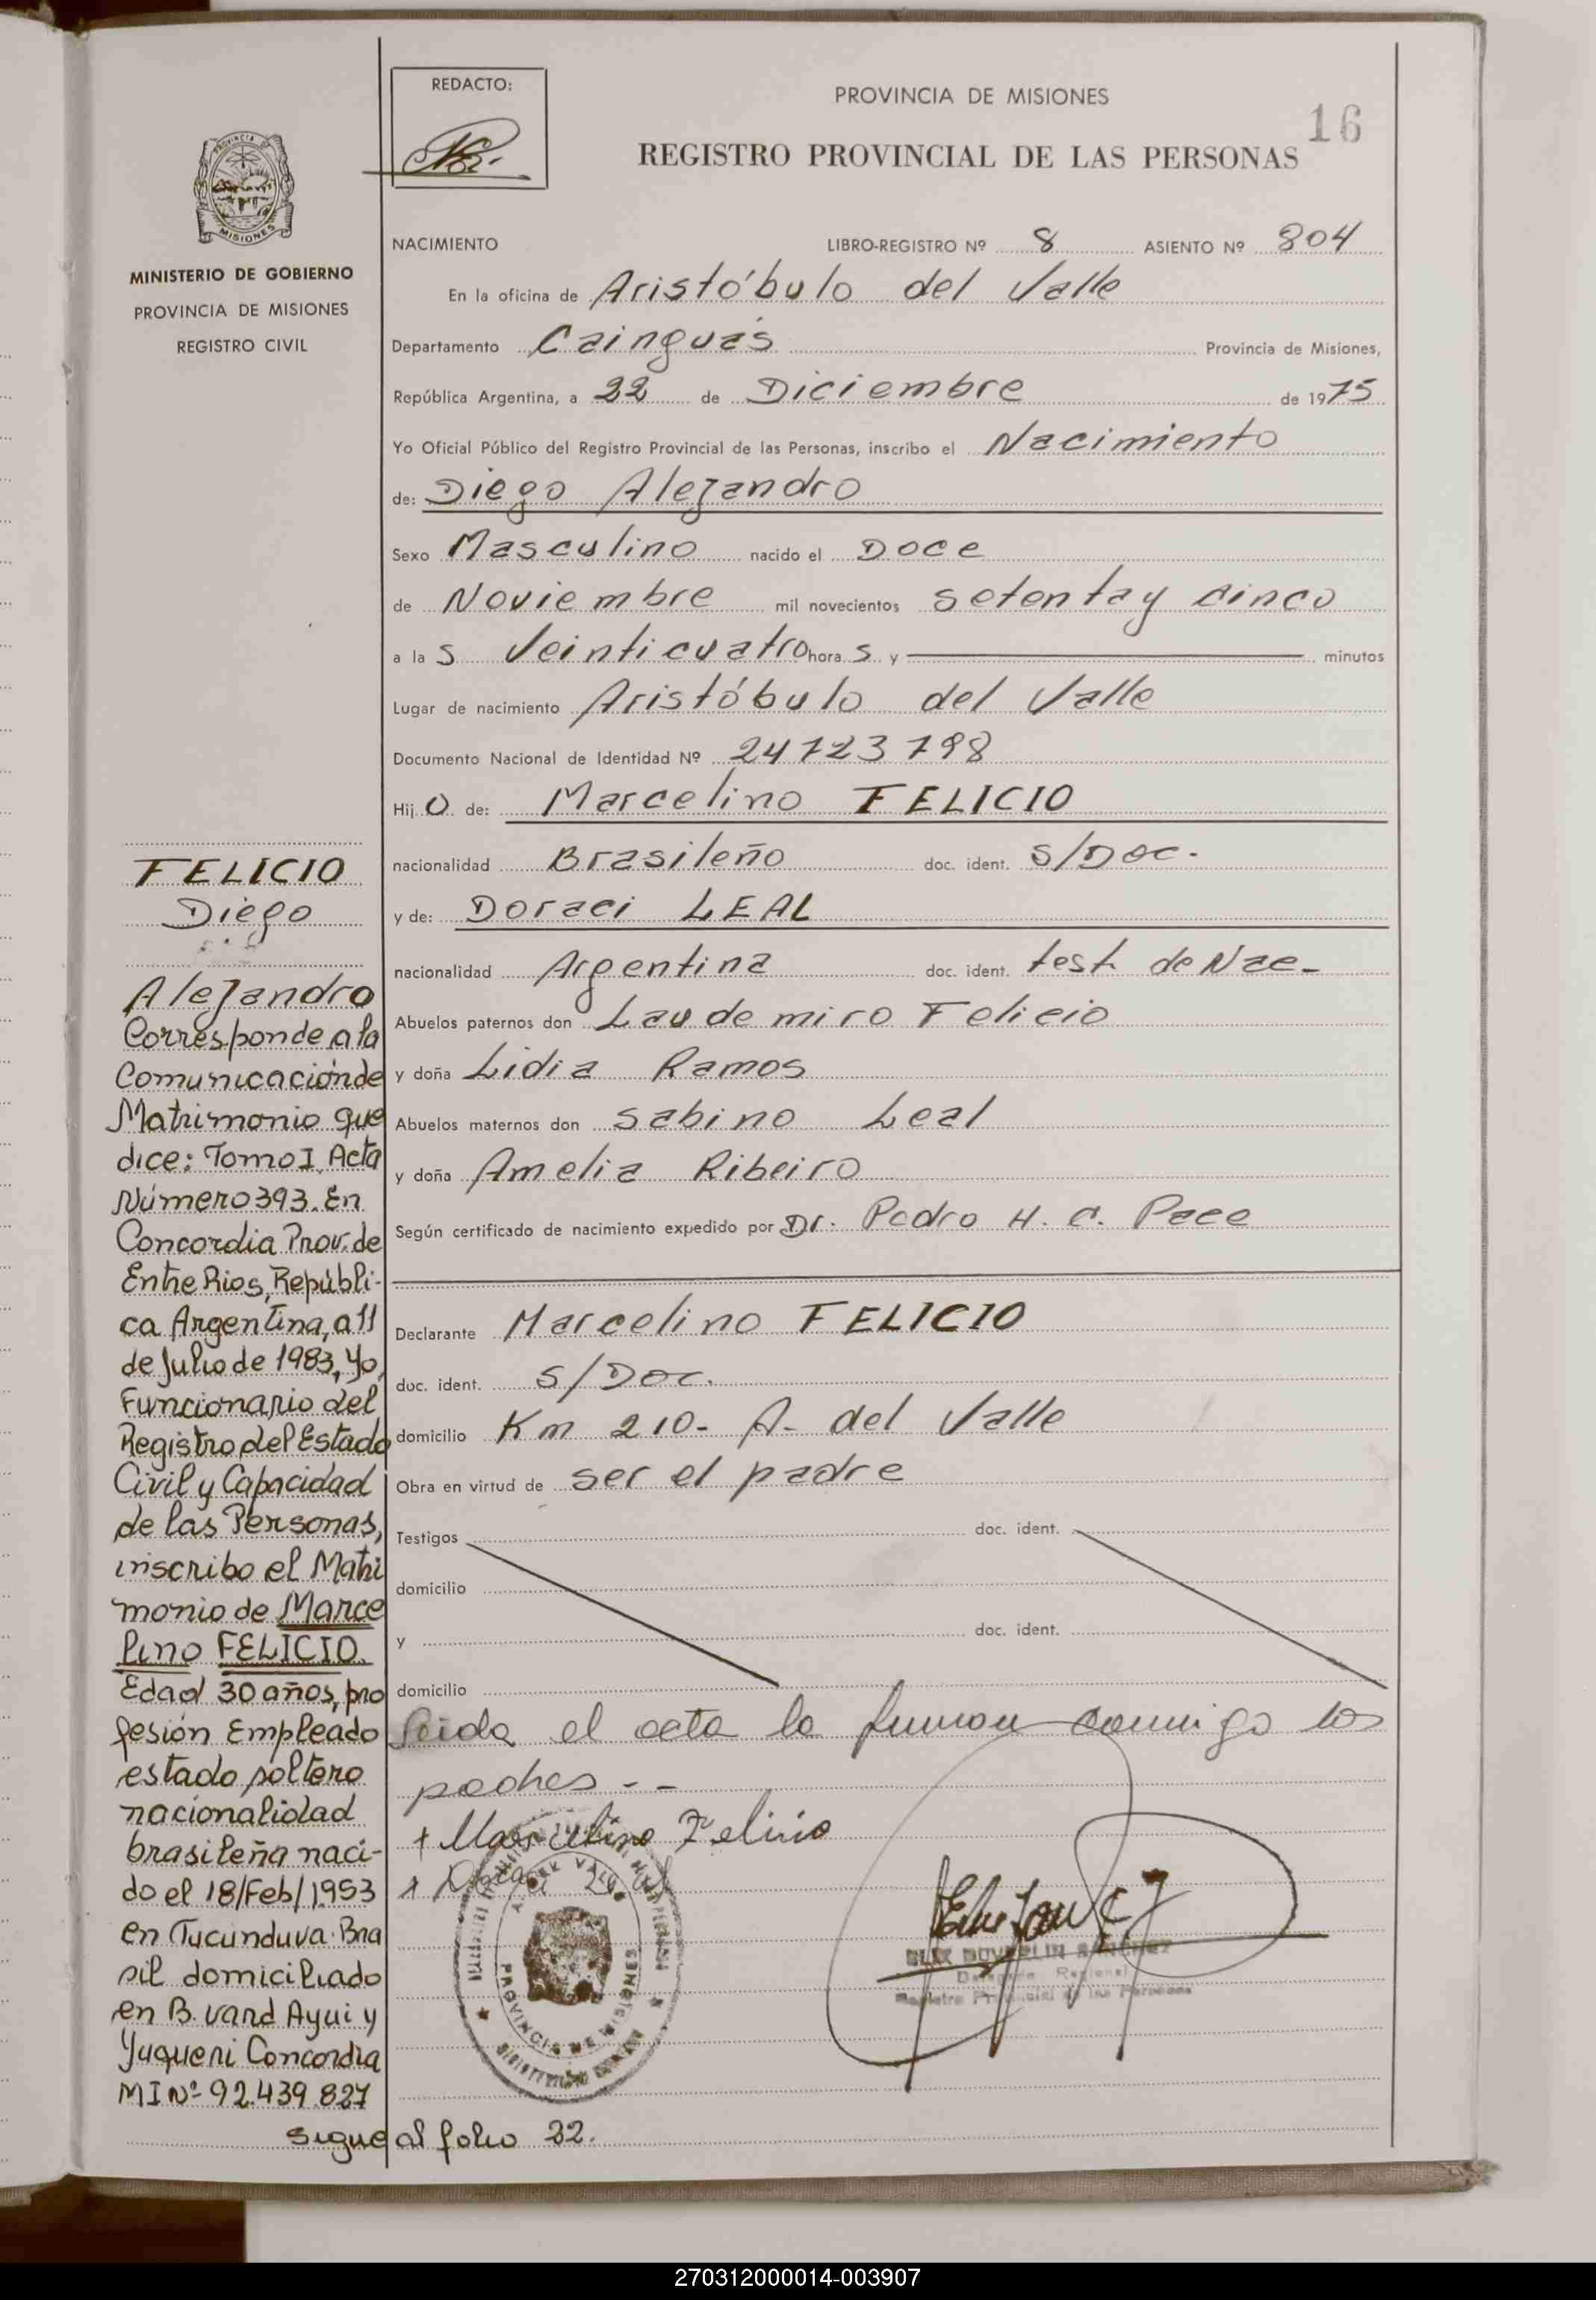 REDACTO:
PROVINCIA DE MISIONES
16
REGISTRO PROVINCIAL DE LAS PERSONAS
PROVINCIA DE
MISIONES
MINISTERIO DE GOBIERNO
PROVINCIA DE MISIONES
REGISTRO CIVIL
NACIMIENTO LIBRO-REGISTRO Nº 8 ASIENTO Nº 804
En la oficina de Aristóbulo del Valle
Departamento Cainguás Provincia de Misiones,
República Argentina, a 22 de Diciembre de 1975
Yo Oficial Público del Registro Provincial de las Personas, inscribo el Nacimiento
de: Diego Alejandro
Sexo Masculino nacido el Doce
de Noviembre mil novecientos setenta y cinco
a las Veinticuatro horas y minutos
Lugar de nacimiento Aristóbulo del Valle
Documento Nacional de Identidad Nº 24723798
Hijo de: Marcelino FELICIO
nacionalidad Brasileño doc. ident. S/Doc.
y de: Doraci LEAL
nacionalidad Argentina doc. ident. test. de Nac-
Abuelos paternos don Laudemiro Felicio
y doña Lidia Ramos
Abuelos maternos don Sabino Leal
y doña Amelia Ribeiro
Según certificado de nacimiento expedido por Dr. Pedro H. C. Pace
Declarante Marcelino FELICIO
doc. ident. S/Doc.
domicilio Km 210- A- del Valle
Obra en virtud de ser el padre
Testigos doc. ident.
domicilio
y doc. ident.
domicilio
Leida el acta la firman conmigo los
padres - -
+ Marcelino Felicio
PROVINCIA DE MISIONES
Delegado Regional
Registro Provincial de las Personas
FELICIO
Diego
Alejandro
Corresponde a la
Comunicación de
Matrimonio que
dice: Tomo I, Acta
Número 393. En
Concordia Prov. de
Entre Rios, Repúbli-
ca Argentina, a 11
de Julio de 1983, yo,
Funcionario del
Registro del Estado
Civil y Capacidad
de las Personas,
inscribo el Matri
monio de Marce
lino FELICIO.
Edad 30 años, pro
fesión Empleado
estado soltero
nacionalidad
brasileña naci-
do el 18/Feb/1953
en Tucunduva-Bra
sil domiciliado
en B. vard Ayui y
Yuqueri Concordia
MI Nº 92.439.827
sigue al folio 22.
270312000014-003907